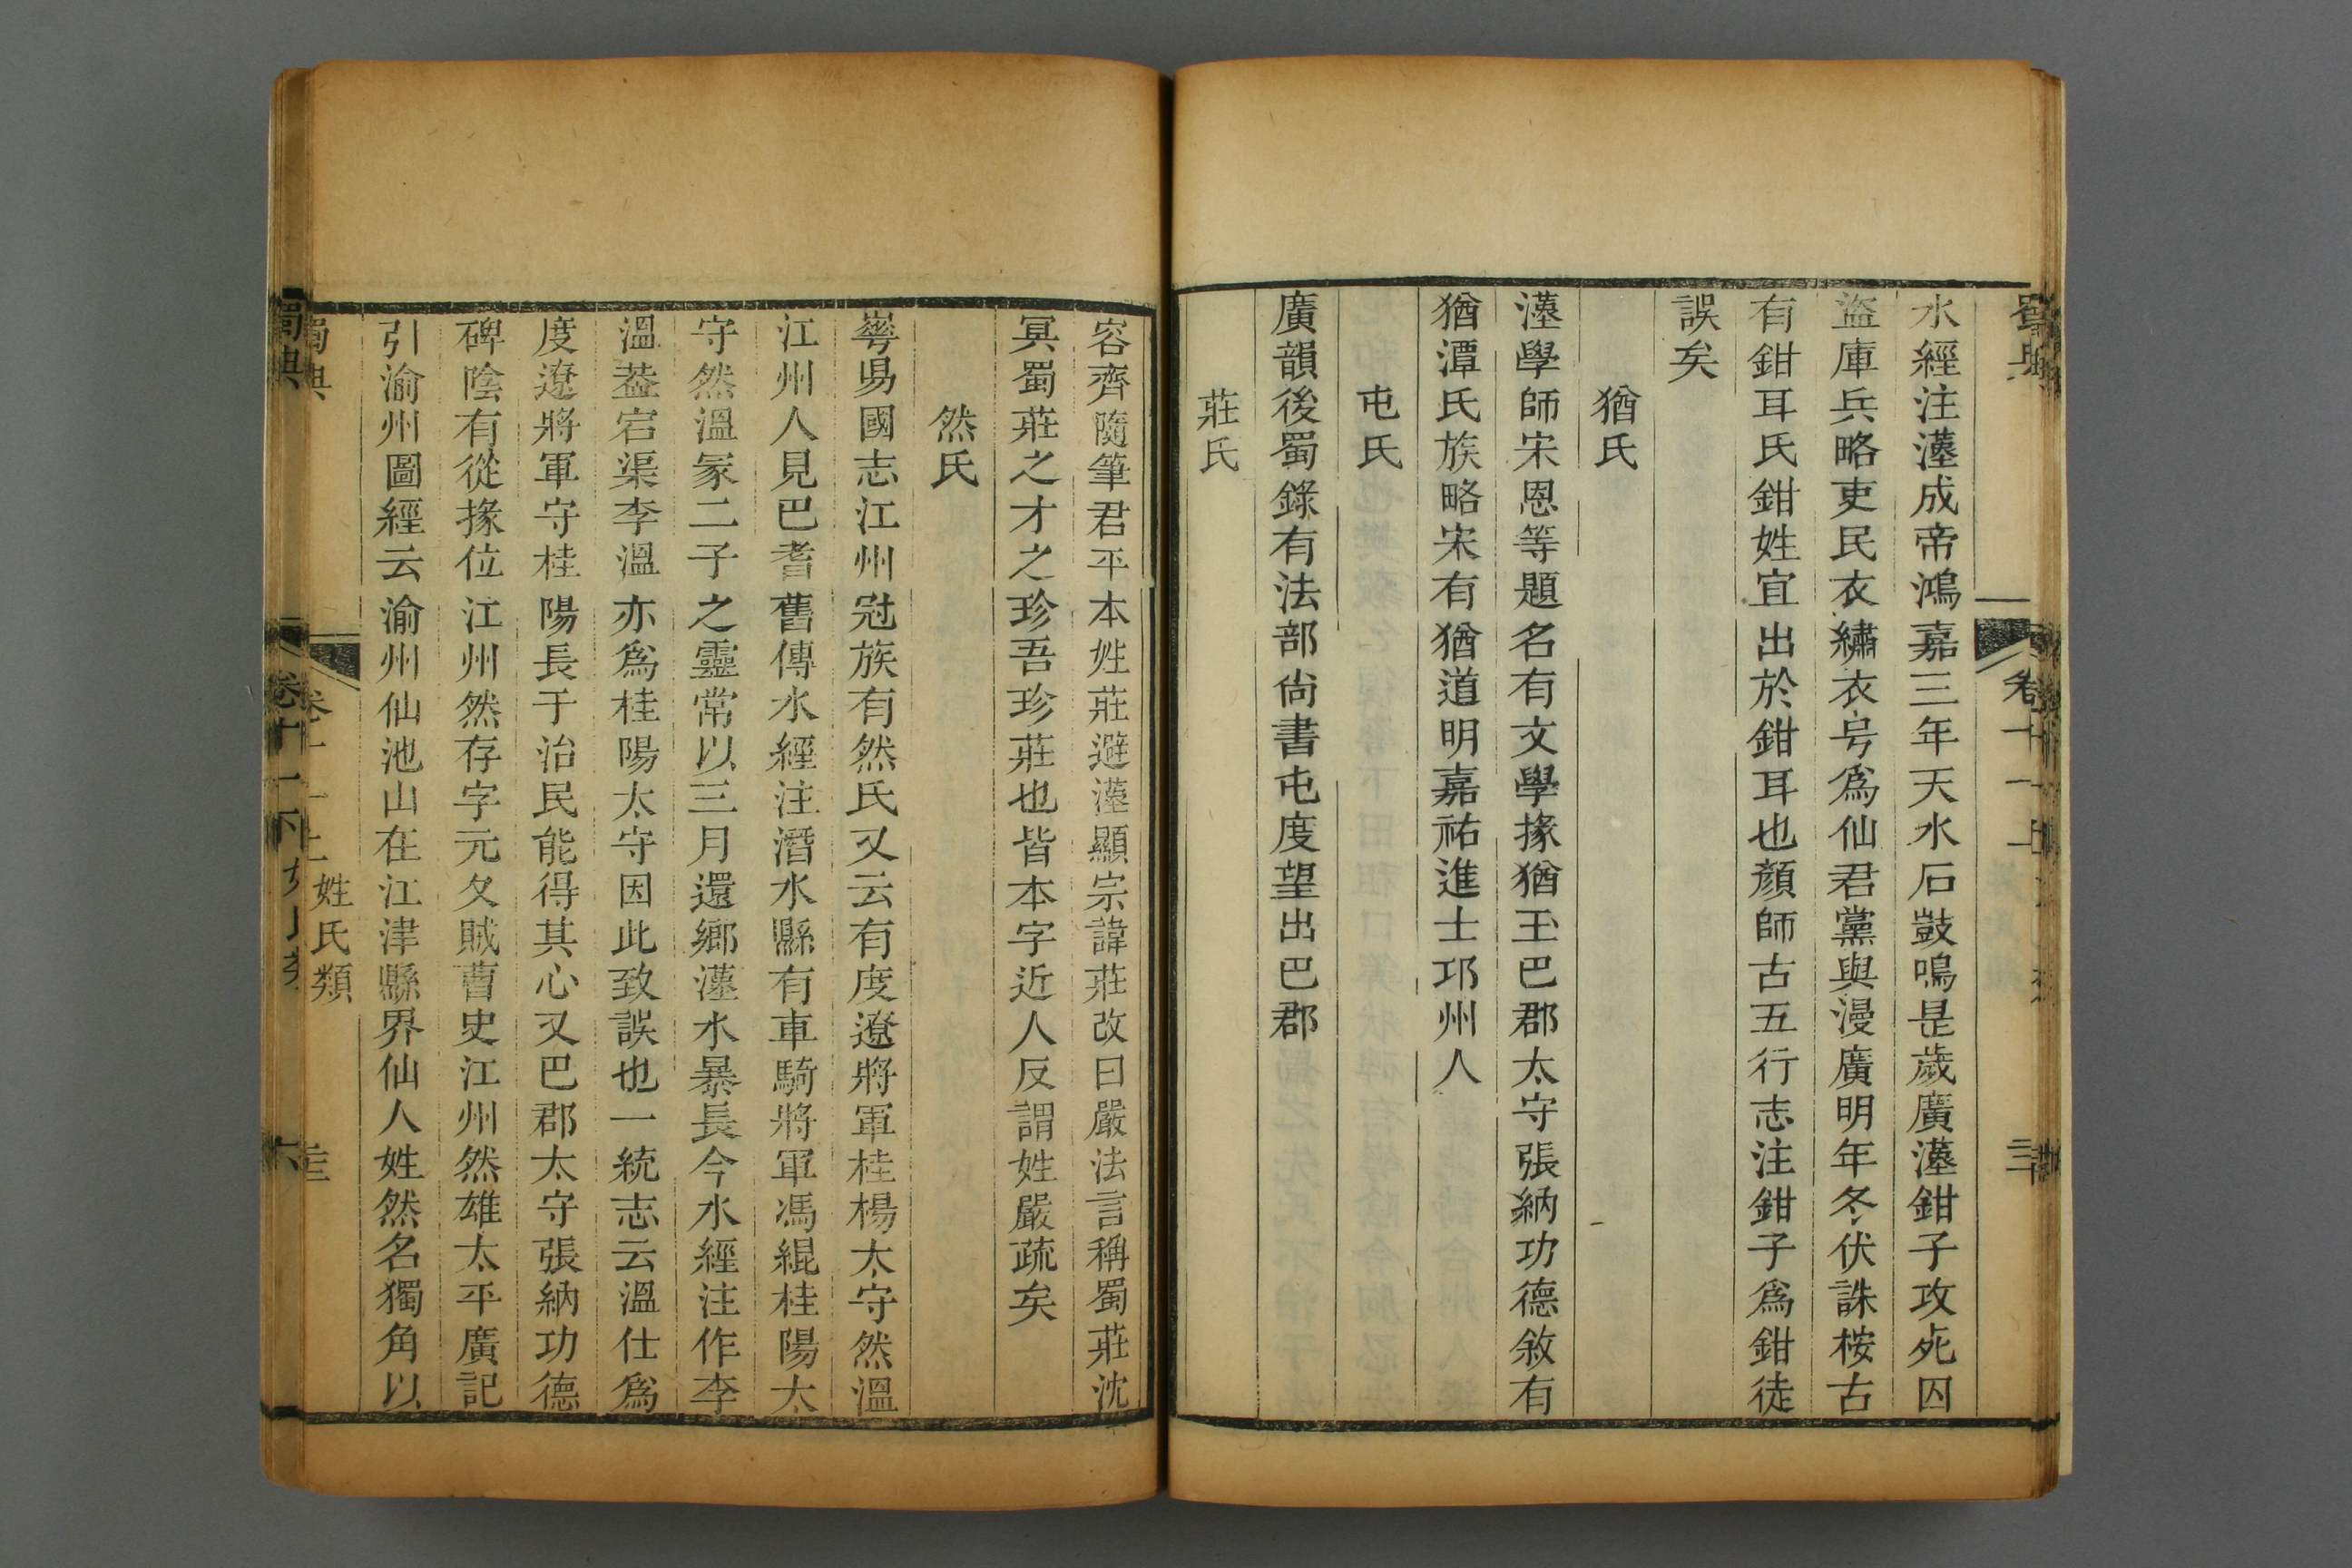 水經注漢成帝鴻嘉三年天水石鼓鳴是歲廣漢鉗子攻死囚
盜庫兵略吏民衣繡衣号爲仙君黨與漫廣明年冬伏誅桉古
有鉗耳氏鉗姓宜出於鉗耳也顏師古五行志注鉗子爲鉗徒
誤矣
猶氏
漢學師宋恩等題名有文學掾猶玉巴郡太守張納功德敘有
猶潭氏族略宋有猶道明嘉祐進士邛州人
屯氏
廣韻後蜀錄有法部尙書屯度望出巴郡
莊氏
容齊隨筆君平本姓莊避漢顯宗諱莊改曰嚴法言稱蜀莊沈
冥蜀莊之才之珍吾珍莊也皆本字近人反謂姓嚴疏矣
然氏
華昜國志江州冠族有然氏又云有度遼將軍桂楊太守然溫
江州人見巴耆舊傳水經注潛水縣有車騎將軍馮緄桂陽太
守然溫冢二子之靈常以三月還鄉漢水暴長今水經注作李
溫葢宕渠李溫亦爲桂陽太守因此致誤也一統志云溫仕爲
度遼將軍守桂陽長于治民能得其心又巴郡太守張納功德
碑陰有從掾位江州然存字元攵賊曹史江州然雄太平廣記
引渝州圖經云渝州仙池山在江津縣界仙人姓然名獨角以
蜀典
卷十一上
姓氏類